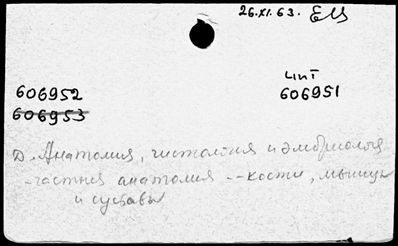 26.XI.63.
606952
606953
606951
Д. Анатомия, гистология и эмбриология
-частная анатомия -- кости, мышцы
и суставы